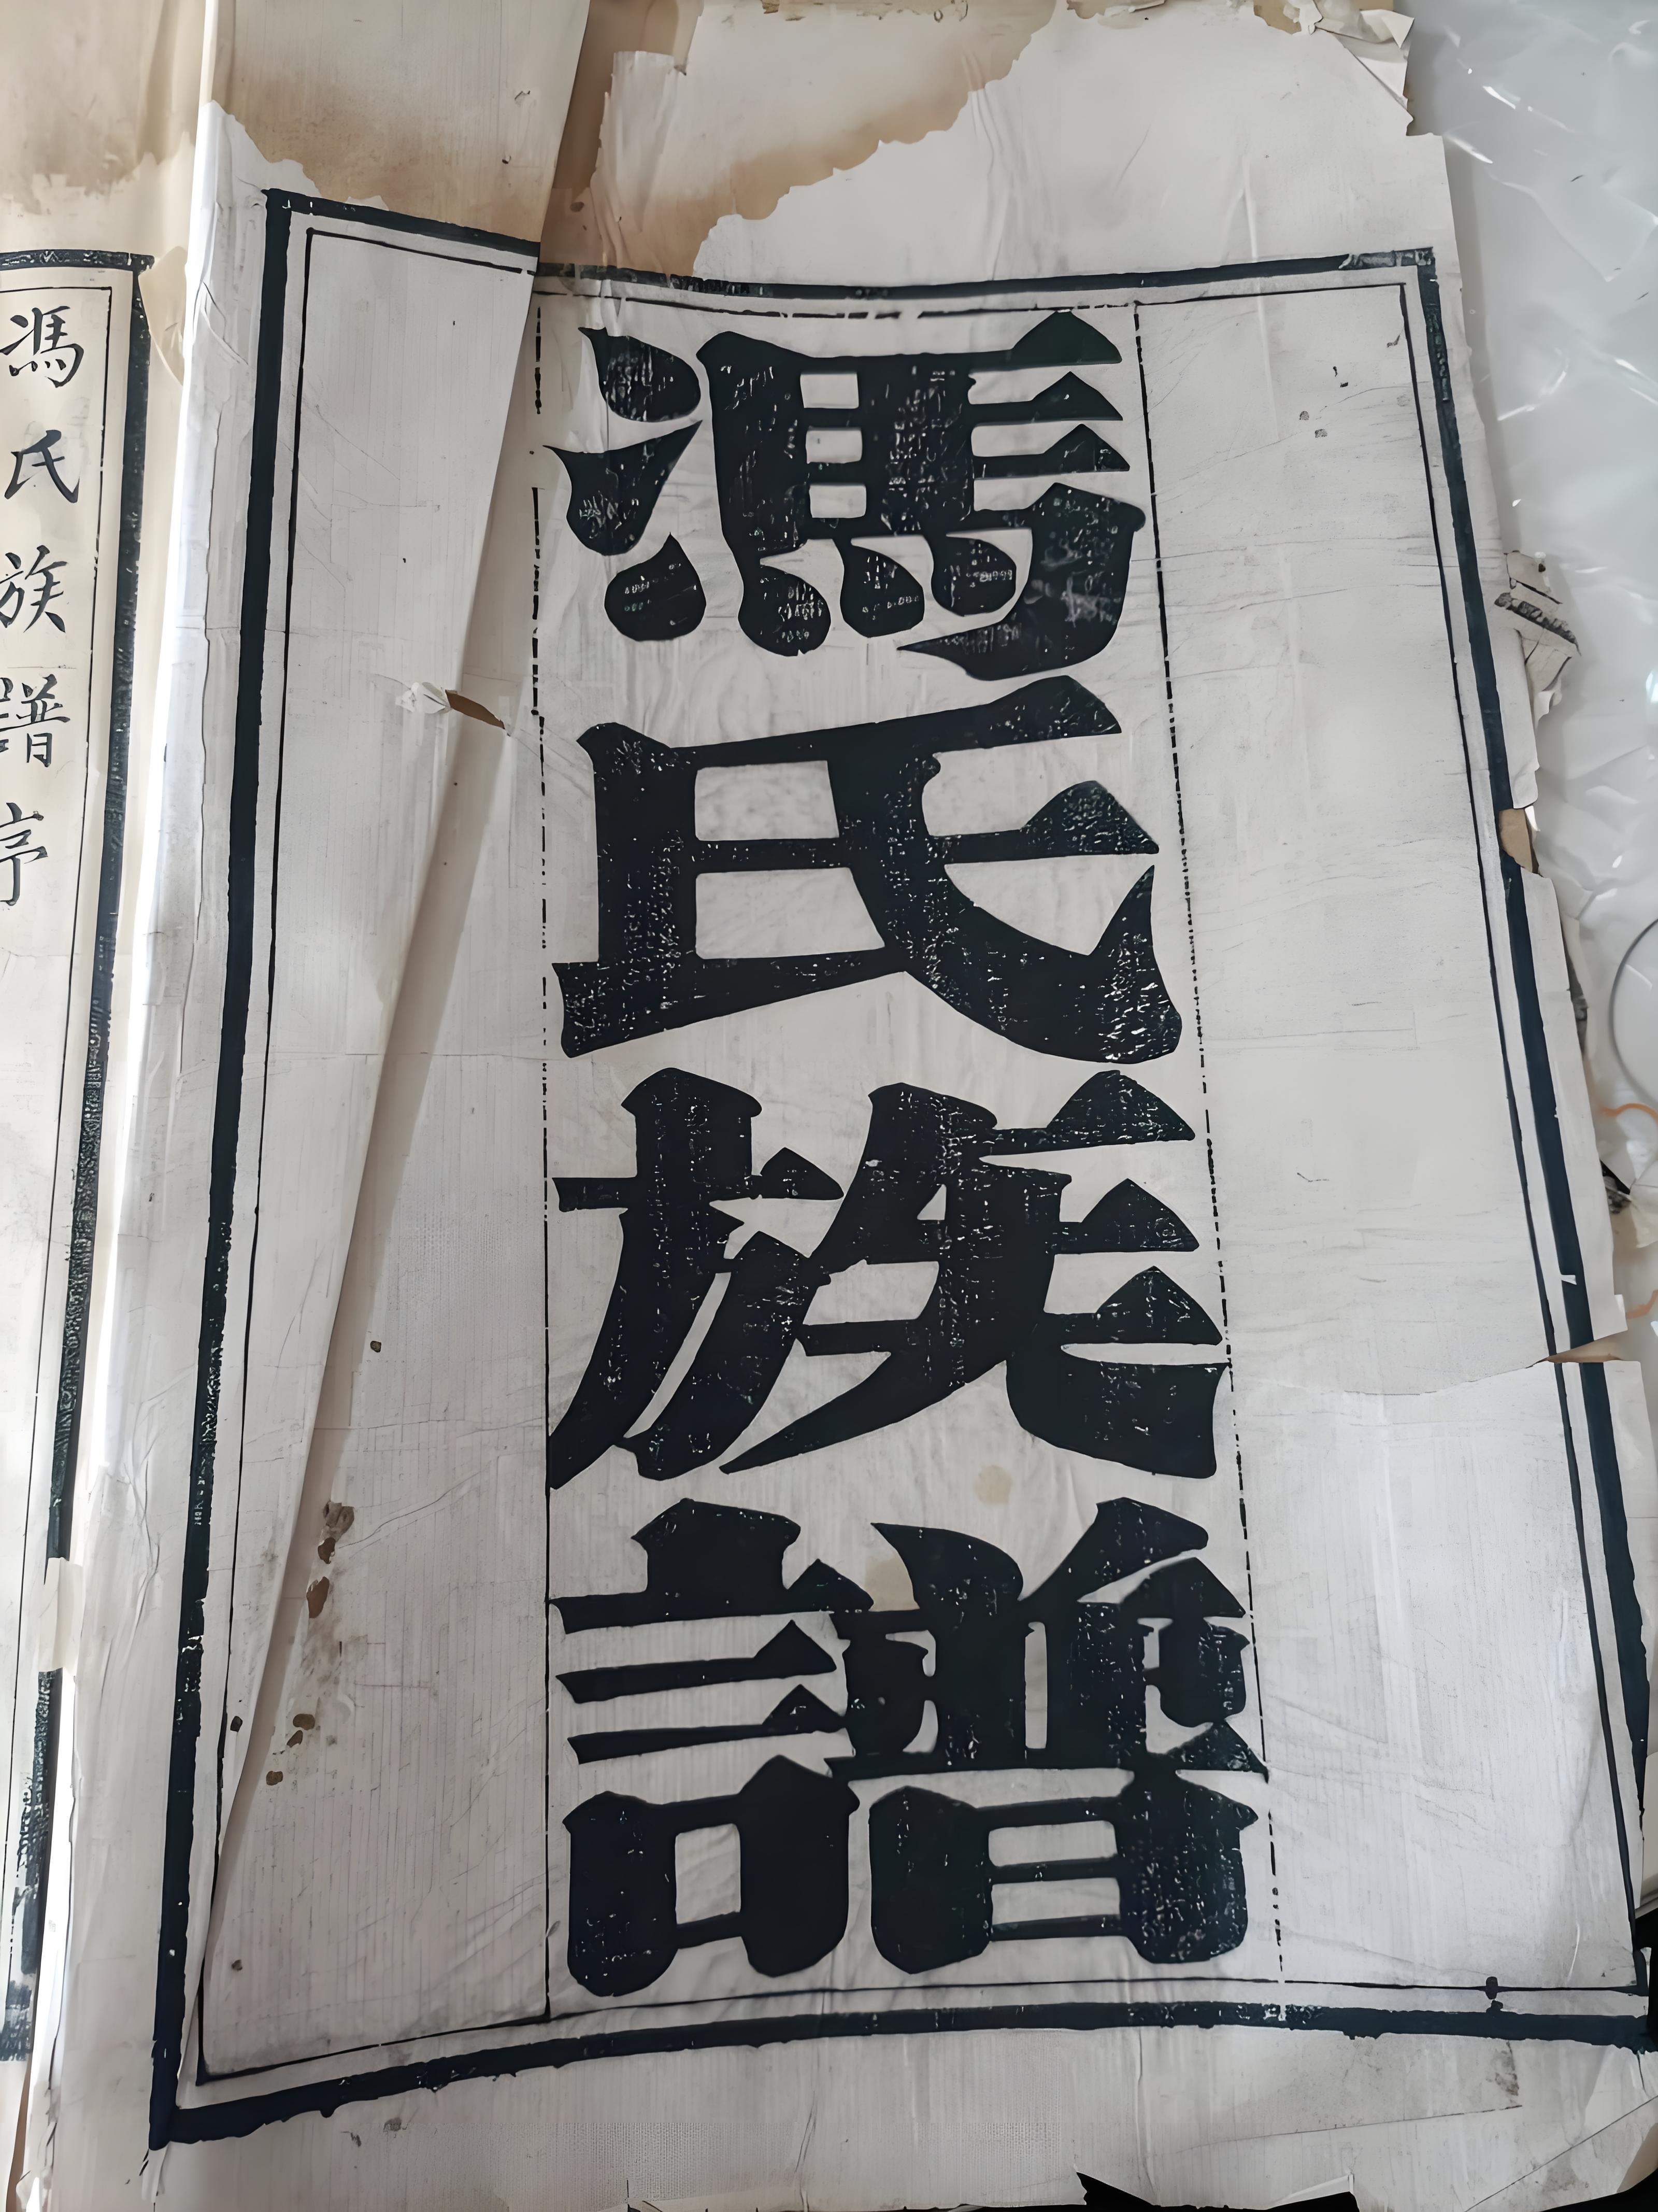 馮氏族譜
馮氏族譜序